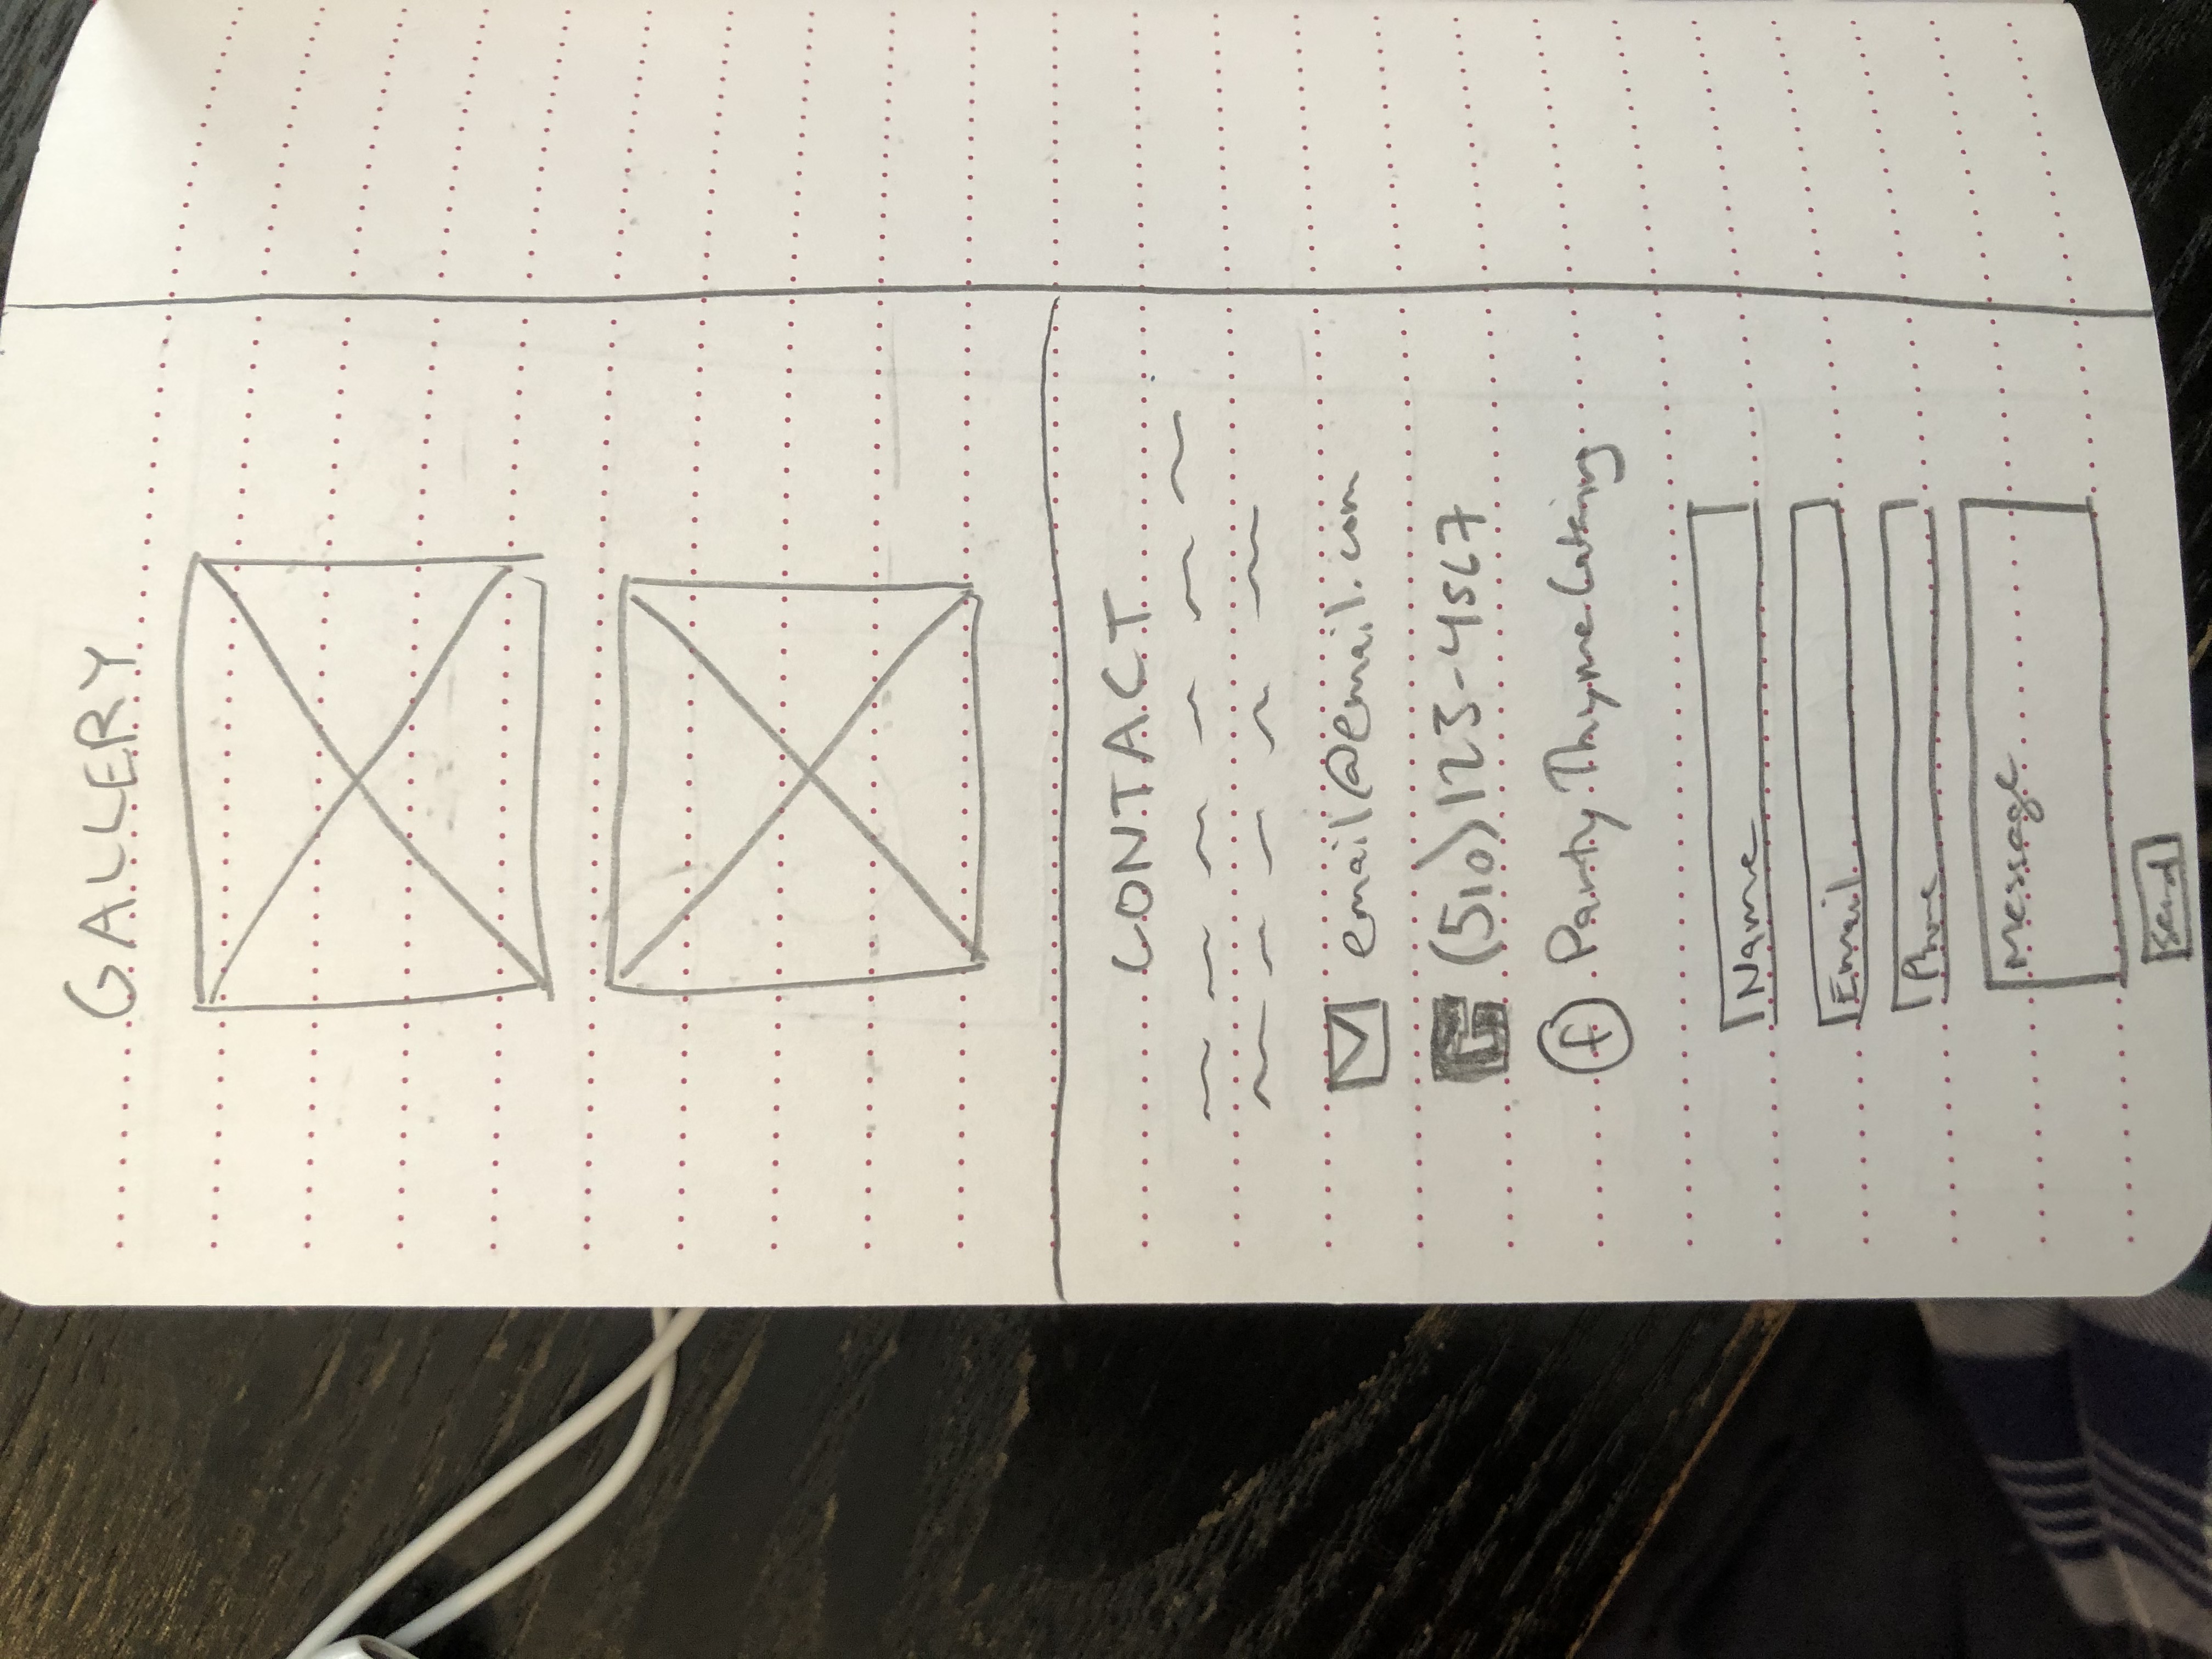 GALLERY
CONTACT
email@email.com
(510) 123-4567
f Party Thyme Catering
Name
Email
Phone
Message
Send